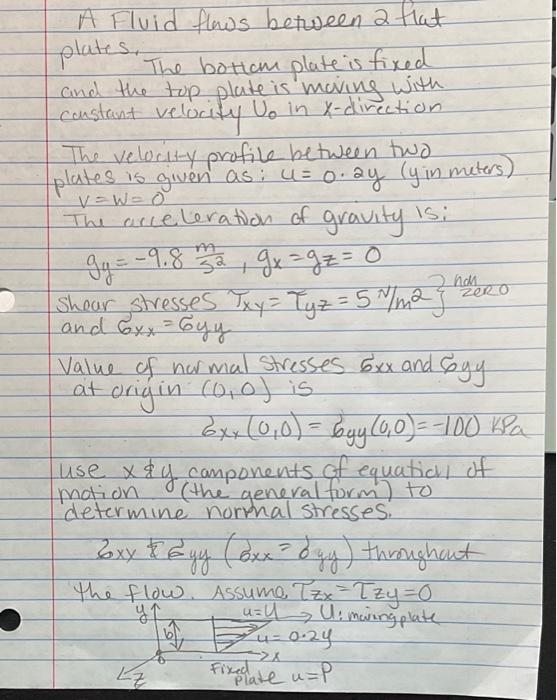 A Fluid flows between 2 flat
plates.
The bottom plate is fixed
and the top plate is moving with
constant velocity U₀ in x-direction
The velocity profile between two
plates is given as: u = 0.2y (y in meters)
V = W = 0
The acceleration of gravity is:
gy = -9.8 m/s², gx = gz = 0
Shear stresses τxy = τyz = 5 N/m² } non zero
and σxx = σyy
Value of normal stresses σxx and σyy
at origin (0,0) is
σxx (0,0) = σyy (0,0) = -100 kPa
use x & y components of equation of
motion (the general form) to
determine normal stresses.
σxy & σyy (σxx = σyy) throughout
the flow. Assume τzx = τzy = 0
y u=U → U: moving plate
b u = 0.2y
x
z Fixed plate u=P